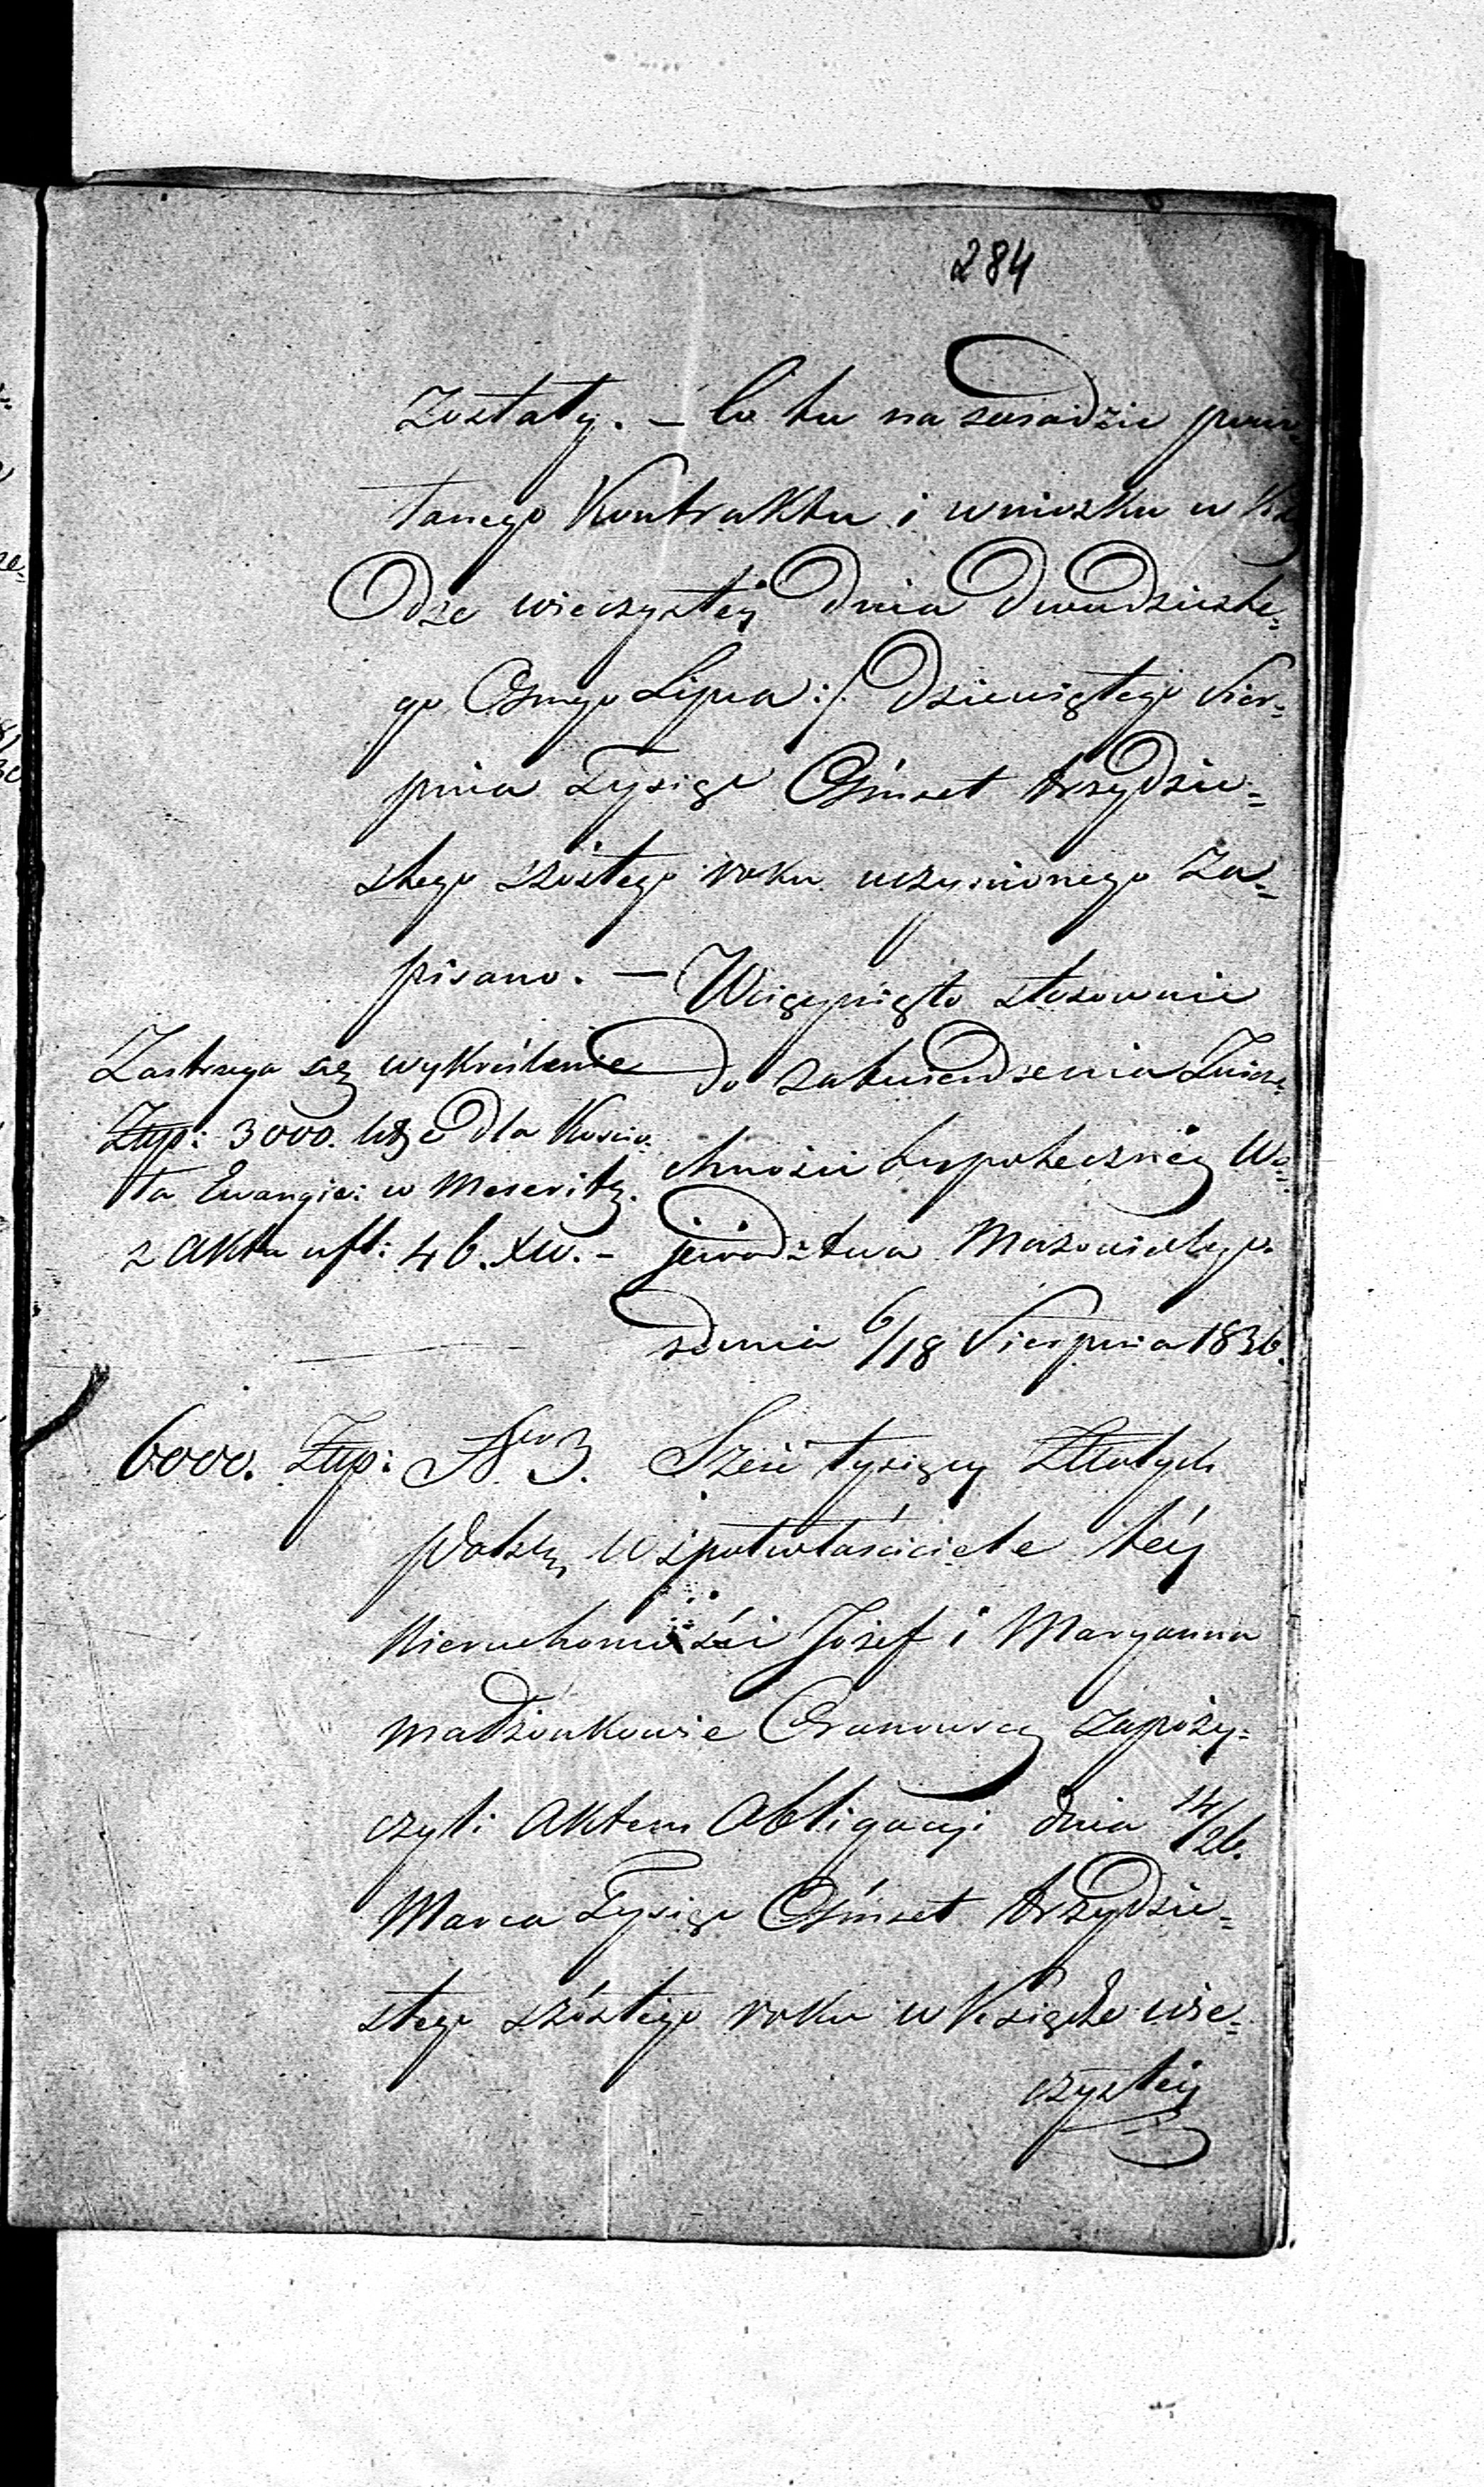 284
zostały. – Co tu na zasadzie powo-
łanego Kontraktu i wniosku w Xię
dze wieczystéj dnia dwudzieste-
go Osmego Lipca :/: dziewiątego Sier-
pnia Tysiąc Ośmset trzydzie-
stego szóstego roku uczynionego za-
pisano. – Wciągnięto stosownie
do zatwierdzenia Zwierz-
chności hypotecznéj Wo-
jewództwa Mazowieckiego.
z dnia 6/18 Sierpnia 1836.
Zastrzega się wykreślenie
Złp: 3000. dla Kościo-
ła Ewangie: w Meseritz.
z Aktu 46. XIV. –
6000. Złp: Nro 3. Sześć tysięcy Złotych
Polskich, Współwłaściciele téy
Nieruchomości Józef i Maryanna
małżonkowie zapoży-
czyli Aktem Obligacyi dnia 14/26.
Marca Tysiąc Ośmset trzydzie-
stego szóstego roku w Księdze wie-
czystéj